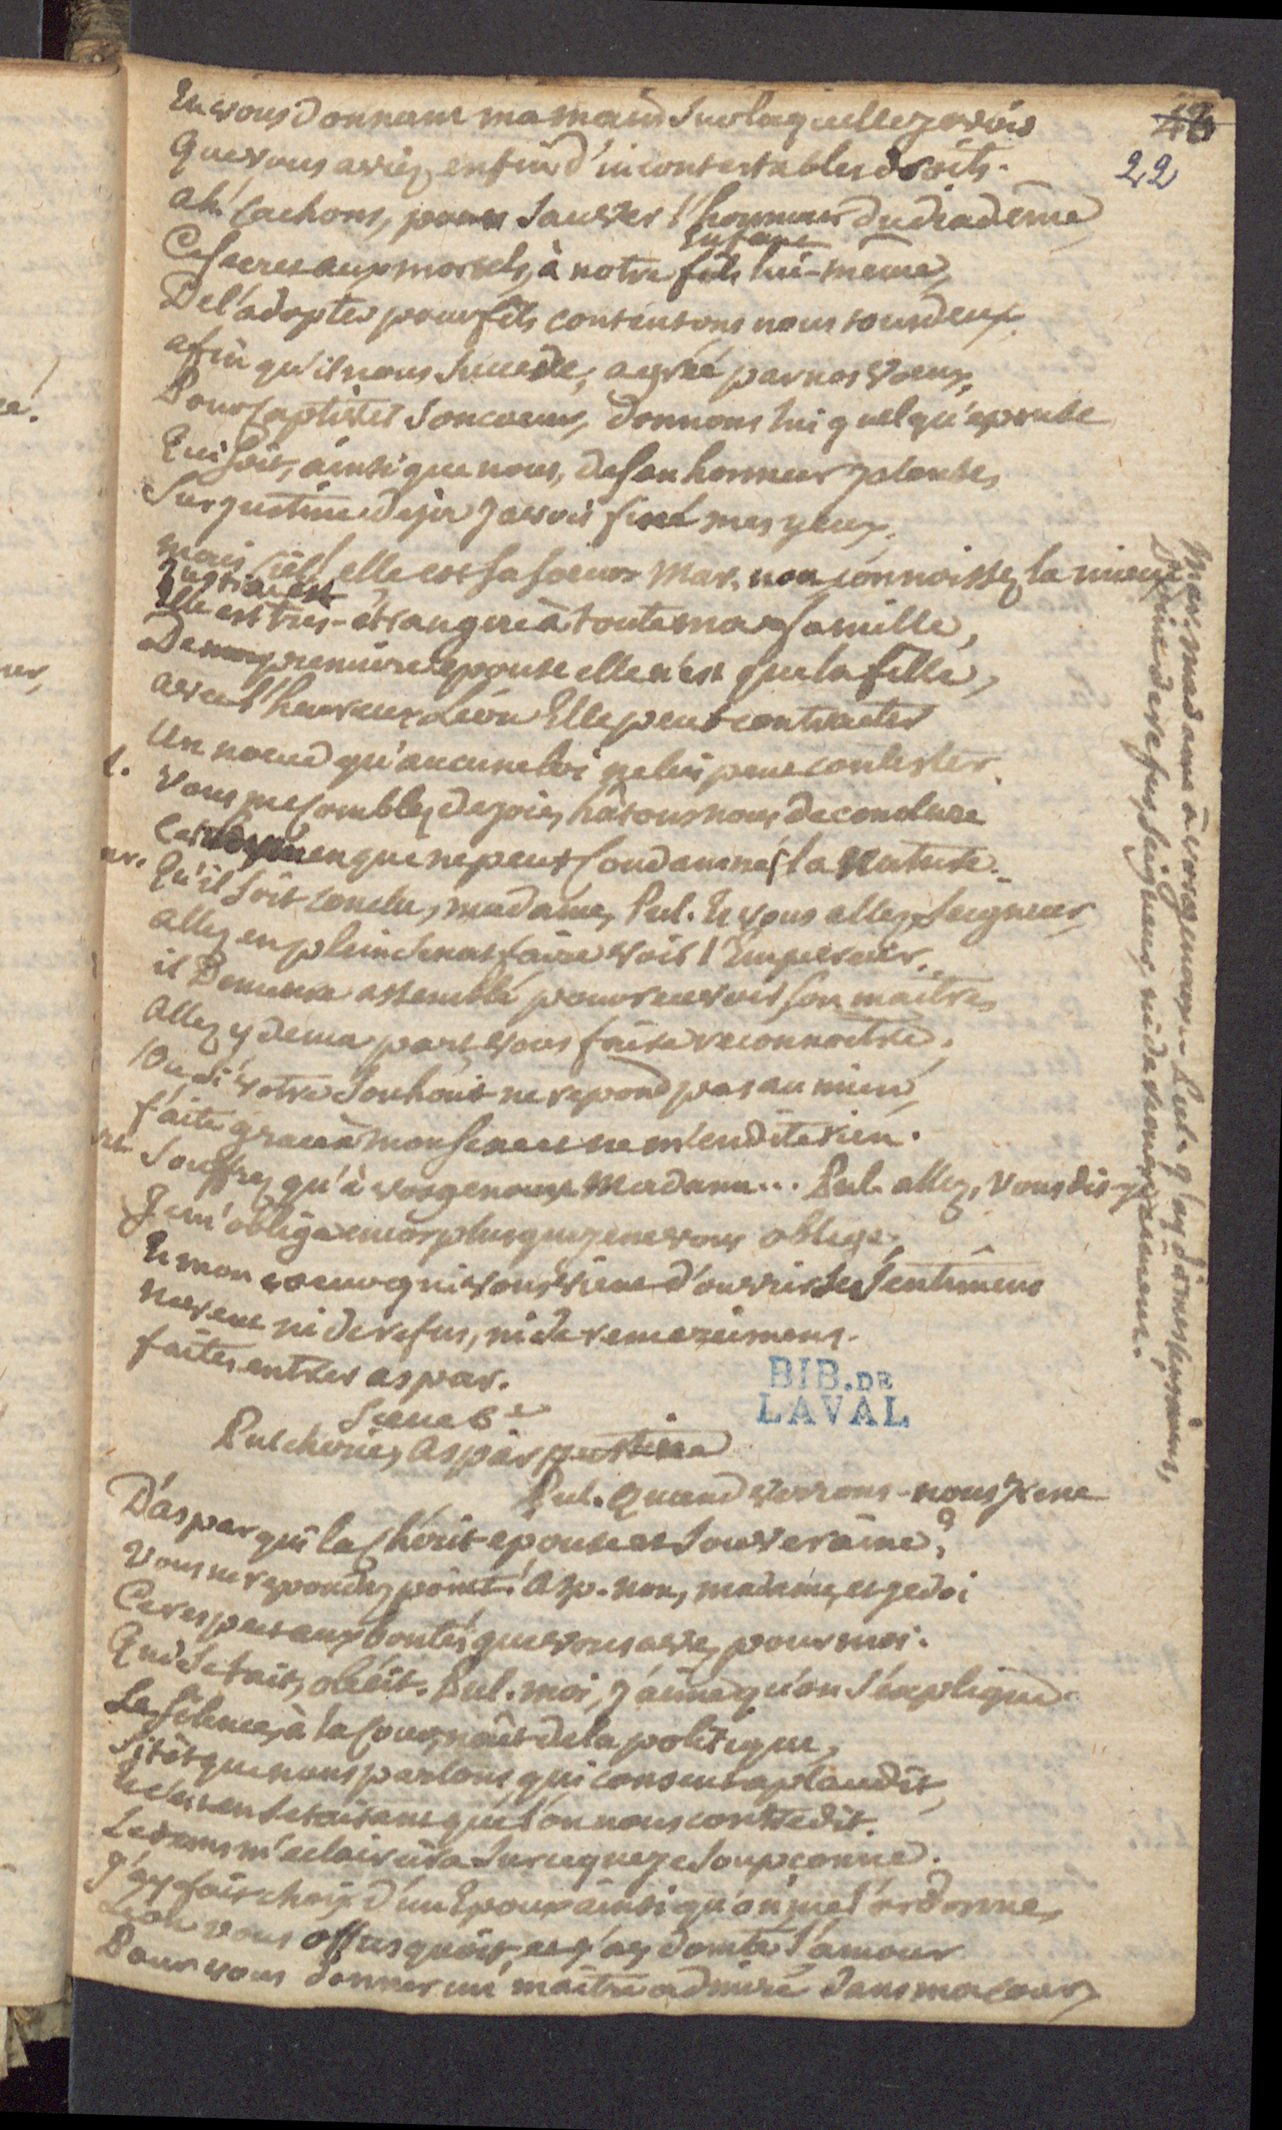 43
22
En vous donnant ma main sur laquelle je vois
Que vous aviez enfin d'incontestables droits.
ah! cachons, pour sauver l'honneur du diadème
Ce secret aux mortels, à notre fils lui-même,
Enfant
De l'adopter pour fils contentons nous tous deux,
afin qu'il nous succede, agréé par nos voeux,
Pour captiver son coeur, donnons lui quelqu'epouse
Qui soit, ainsi que nous, de son honneur jalouse,
Sur justine deja j'avois fixé mes yeux,
mais ciel! elle est sa soeur Mar. non connoissez la mieux
Justine est
Elle est tres-étrangere à toute ma famille,
De ma premiere epouse elle n'est que la fille,
avec l'heureux Léon Elle peut contracter
Un noeud qu'aucune loi ne lui peut contester.
Vous me comblez de joie, hâtons nous de conclure
Cet hymen que ne peut condamner la Nature.
Qu'il soit conclu, madame, Pul. Et vous allez Seigneur,
allez en plein senat faire voir l'Empereur,
il Demeure assemblé pour recevoir son maitre,
Allez y de ma part vous faire reconnoitre,
Ou, si votre souhait ne repond pas au mien,
faite grace à mon sexe et ne m'en dite rien.
Souffrez qu'à vos genoux Madame... Pul. allez, vous dis-je
Je m'oblige encor plus que je ne vous oblige.
Et mon coeur qui vous vient d'ouvrir ses sentimens
ne veut ni de refus, ni de remerciemens.
faites entrer aspar.
BIB. DE
LAVAL
Scene 6e
Pulcherie, Aspar, justine
Pul. Quand verrons-nous Irene
D'aspar qui la cherit epouse et souveraine?
Vous ne repondez point! Asp. non, madame, et je doi
Ce respect aux bontés que vous avez pour moi.
Qui se tait, obéit. Pul. moi, j'aime qu'on s'explique.
Le silence, à la cour, naît de la politique,
Sitôt que nous parlons, qui consent aplaudit,
Et c'est en se taisant que l'on nous contredit.
Le tems m'eclaircira sur ce que je soupçonne.
j'ay fait choix d'un Epoux ainsi qu'on me l'ordonne,
Leon vous offusquoit, et j'ay domté l'amour
Pour vous donner un maitre admiré dans ma cour,
Mar. madame à vos genoux... Pul. j'ay dit mes sentimens,
Point de refus, Seigneur, ni de remerciemens.